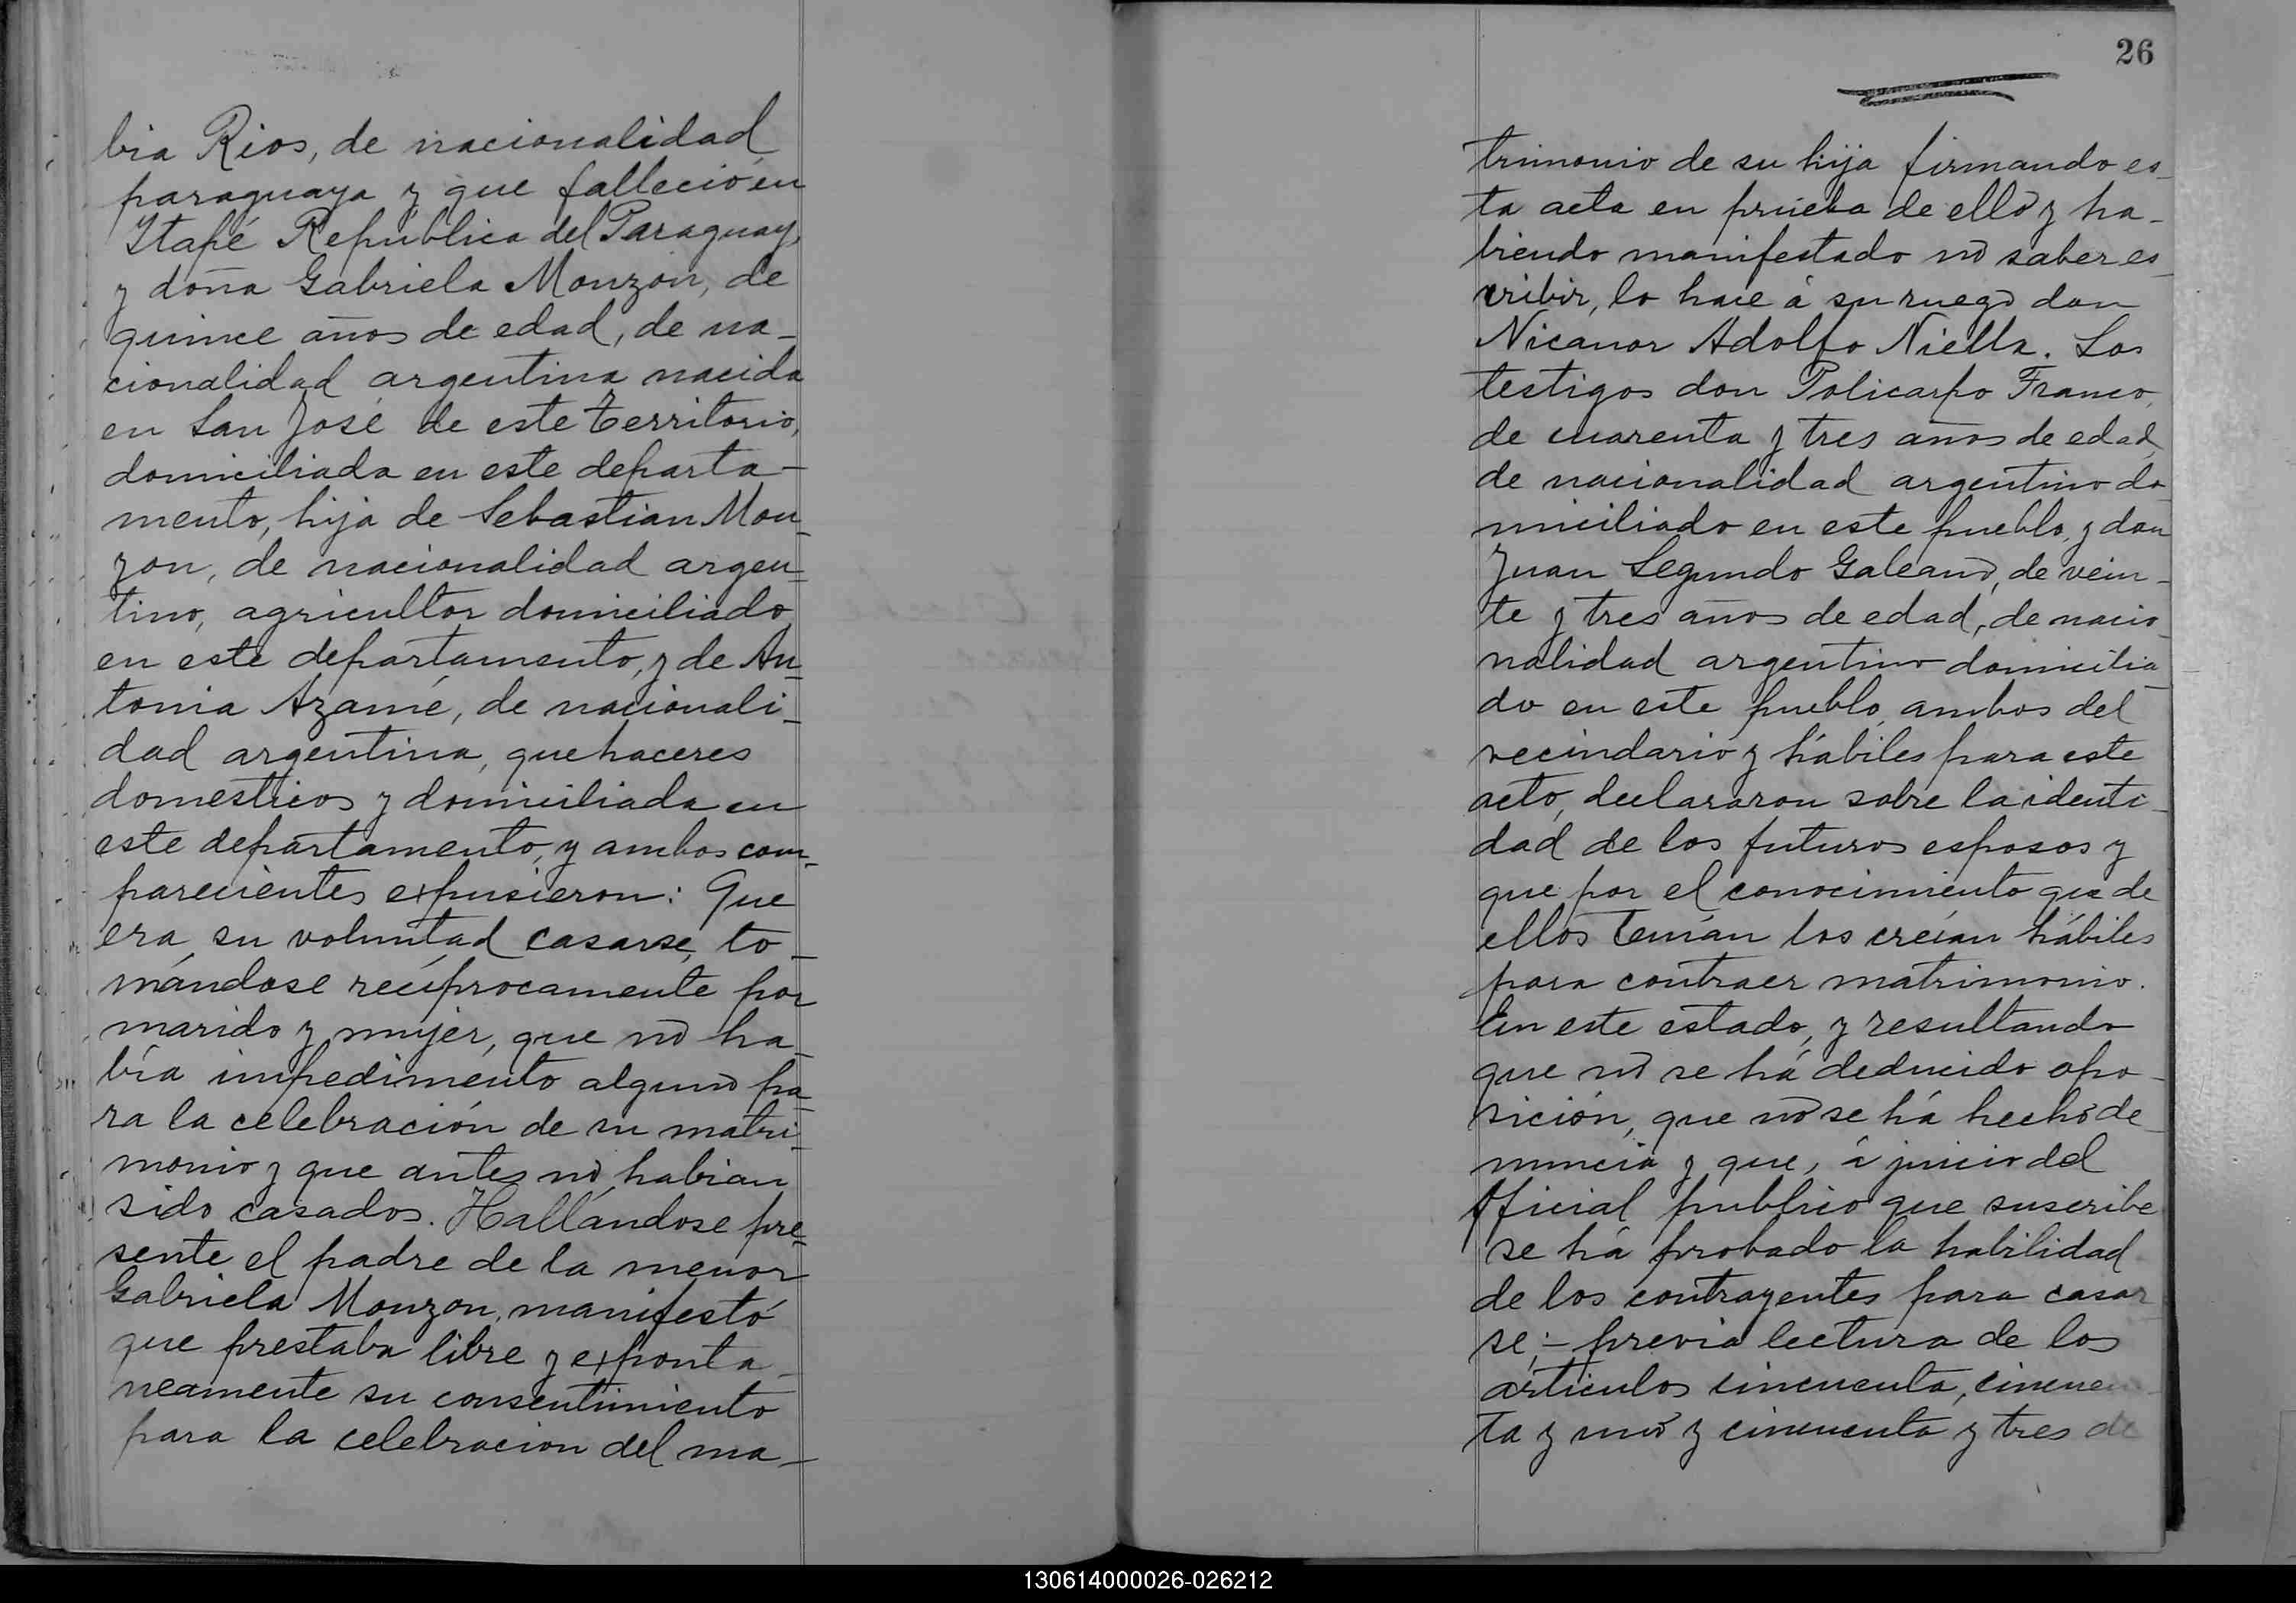 bia Rios, de nacionalidad
paraguaya y que falleció en
Itapé República del Paraguay,
y doña Gabriela Monzón, de
quince años de edad, de na-
cionalidad argentina nacida
en San José de este territorio,
domiciliada en este departa-
mento, hija de Sebastian Mon-
zon, de nacionalidad argen-
tino, agricultor domiciliado
en este departamento, y de An-
tonia Azamé, de nacionali-
dad argentina, quehaceres
domesticos y domiciliada en
este departamento, y ambos com-
parecientes expusieron: Que
era su voluntad casarse, to-
mándose recíprocamente por
marido y mujer, que no ha-
bía impedimento alguno pa-
ra la celebración de su matri-
monio y que antes no habian
sido casados. Hallándose pre-
sente el padre de la menor
Gabriela Monzon, manifestó
que prestaba libre y exponta-
neamente su consentimiento
para la celebracion del ma-
26
trimonio de su hija firmando es-
ta acta en prueba de ello y ha-
biendo manifestado no saber es-
cribir, lo hace á su ruego don
Nicanor Adolfo Niella. Los
testigos don Policarpo Franco,
de cuarenta y tres años de edad,
de nacionalidad argentino do-
miciliado en este pueblo, y don
Juan Segundo Galeano, de vein-
te y tres años de edad, de nacio-
nalidad argentino domicilia-
do en este pueblo, ambos del
vecindario y hábiles para este
acto, declararon sobre la identi-
dad de los futuros esposos y
que por el conocimiento que de
ellos tenían los creían hábiles
para contraer matrimonio.
En este estado, y resultando
que no se há deducido opo-
sición, que no se há hecho de-
nuncia y que, á juicio del
Oficial publico que suscribe
se há probado la habilidad
de los contrayentes para casar
se;- previa lectura de los
artículos cincuenta, cincuen-
ta y uno y cincuenta y tres de
130614000026-026212